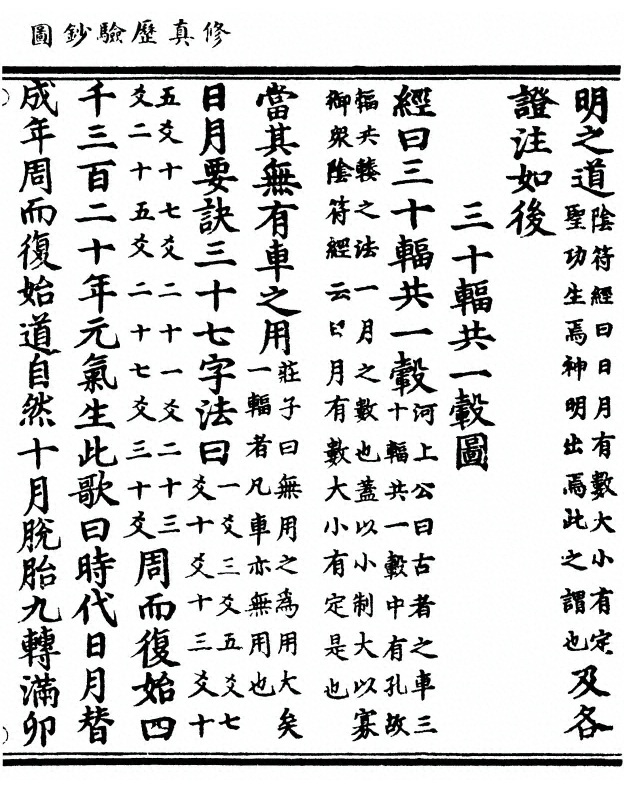 修真歷驗鈔圖
明之道
陰符經曰日月有數大小有定
聖功生焉神明出焉此之謂也
及各
證注如後
三十輻共一轂圖
經曰三十輻共一轂
河上公曰古者之車三
十輻共一轂中有孔故
輻共輳之法一月之數也蓋以小制大以寡
御衆陰符經云日月有數大小有定是也
當其無有車之用
莊子曰無用之為用大矣
一輻者凡車亦無用也
日月要訣三十七字法曰
一爻三爻五爻七
爻十爻十三爻十
五爻十七爻二十一爻二十三
爻二十五爻二十七爻三十爻
周而復始四
千三百二十年元氣生此歌曰時代日月替
成年周而復始道自然十月脫胎九轉滿卯